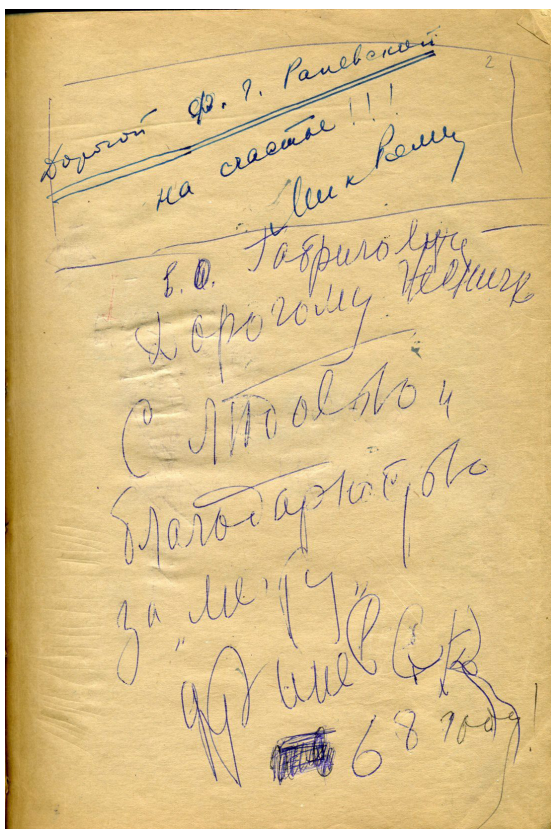 2
Дорогой Ф. Г. Раневской
на счастье!!!
В. О. Габриловичу
Дорогому
С любовью и
благодарностью
за "мечту"
Ф Раневск
68 года!